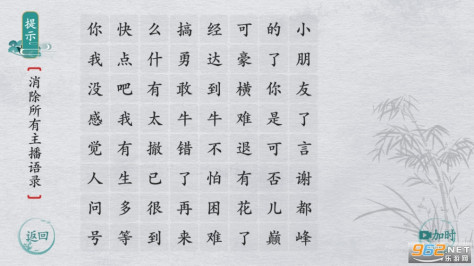 提示
消除所有主播语录
你快么搞经可的小
我点什勇达豪了朋
没吧有敢到横你友
感我太牛牛难是了
觉有撤错不退可言
人生已了怕有否谢
问多很再困花儿都
号等到来难了巅峰
返回
加时
962.NET
乐游网